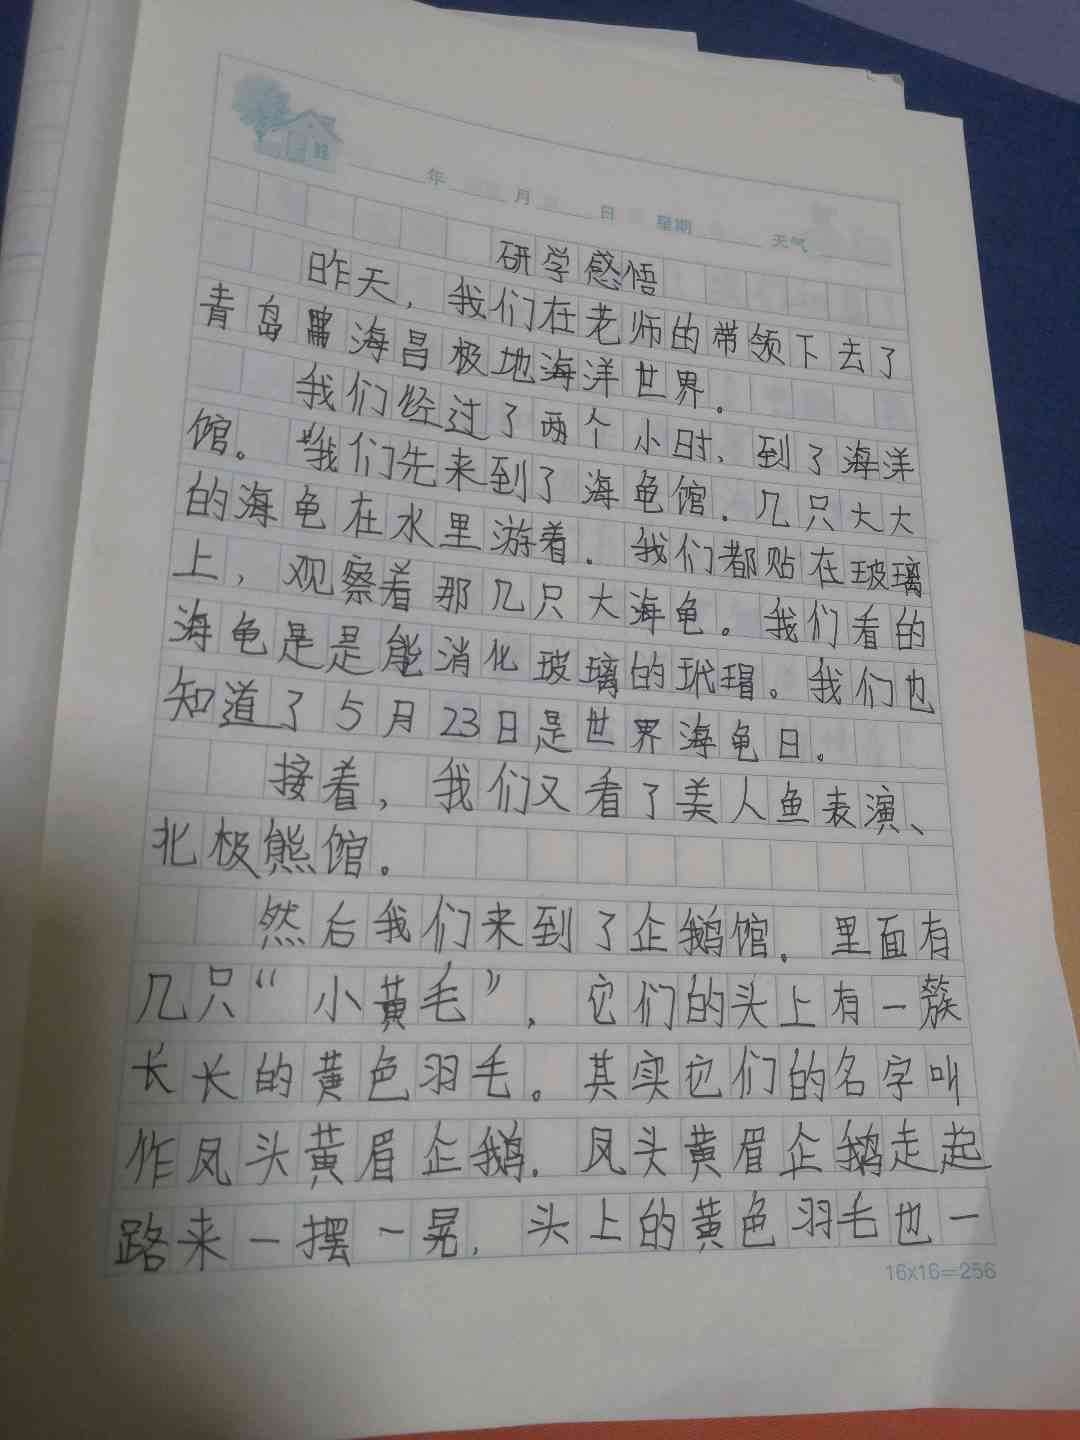 年 月 日 星期 天气
研学感悟
昨天，我们在老师的带领下去了
青岛海昌极地海洋世界。
我们经过了两个小时，到了海洋
馆。我们先来到了海龟馆。几只大大
的海龟在水里游着。我们都贴在玻璃
上，观察着那几只大海龟。我们看的
海龟是是能消化玻璃的玳瑁。我们也
知道了5月23日是世界海龟日。
接着，我们又看了美人鱼表演、
北极熊馆。
然后我们来到了企鹅馆。里面有
几只“小黄毛”，它们的头上有一簇
长长的黄色羽毛。其实它们的名字叫
作凤头黄眉企鹅。凤头黄眉企鹅走起
路来一摆一晃，头上的黄色羽毛也一
16×16=256